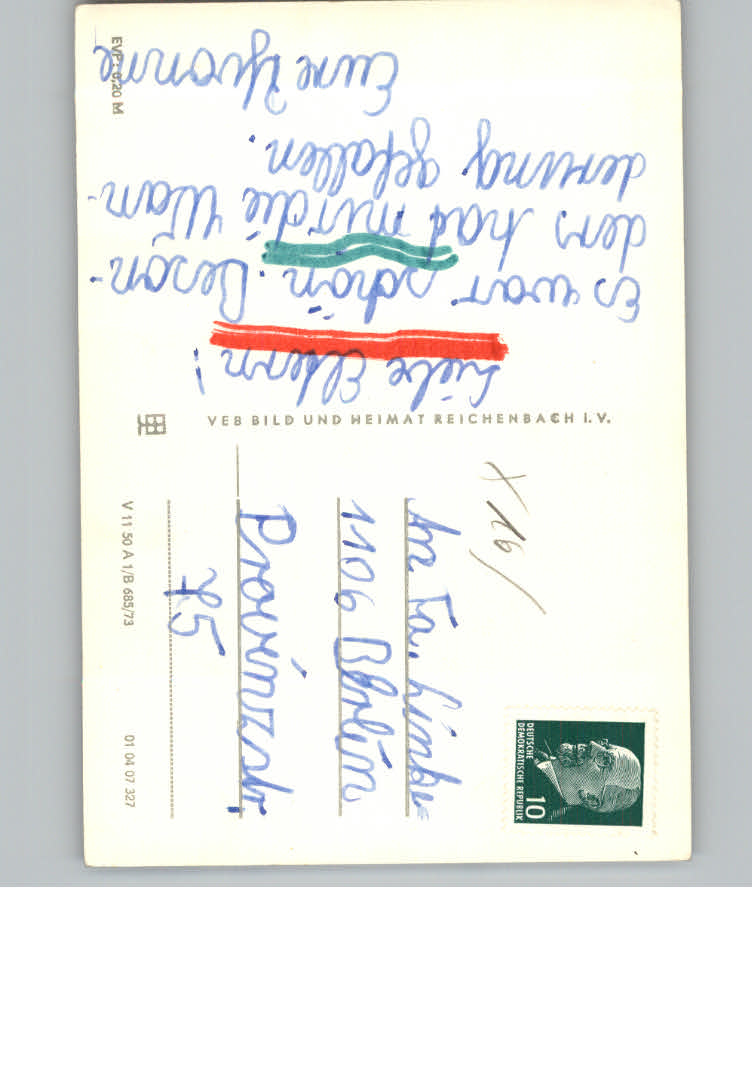 Liebe Eldern!
Es war schön. Beson-
ders had mir die Wan-
derung gefallen.
Eure Yvonne
EVP: 0,20 M
VEB BILD UND HEIMAT REICHENBACH I. V.
V 11 50 A 1/B 685/73
01 04 07 327
An Fa. Linke
1106 Berlin
Provinzstr.
75
X 16/
DEUTSCHE
DEMOKRATISCHE REPUBLIK
10